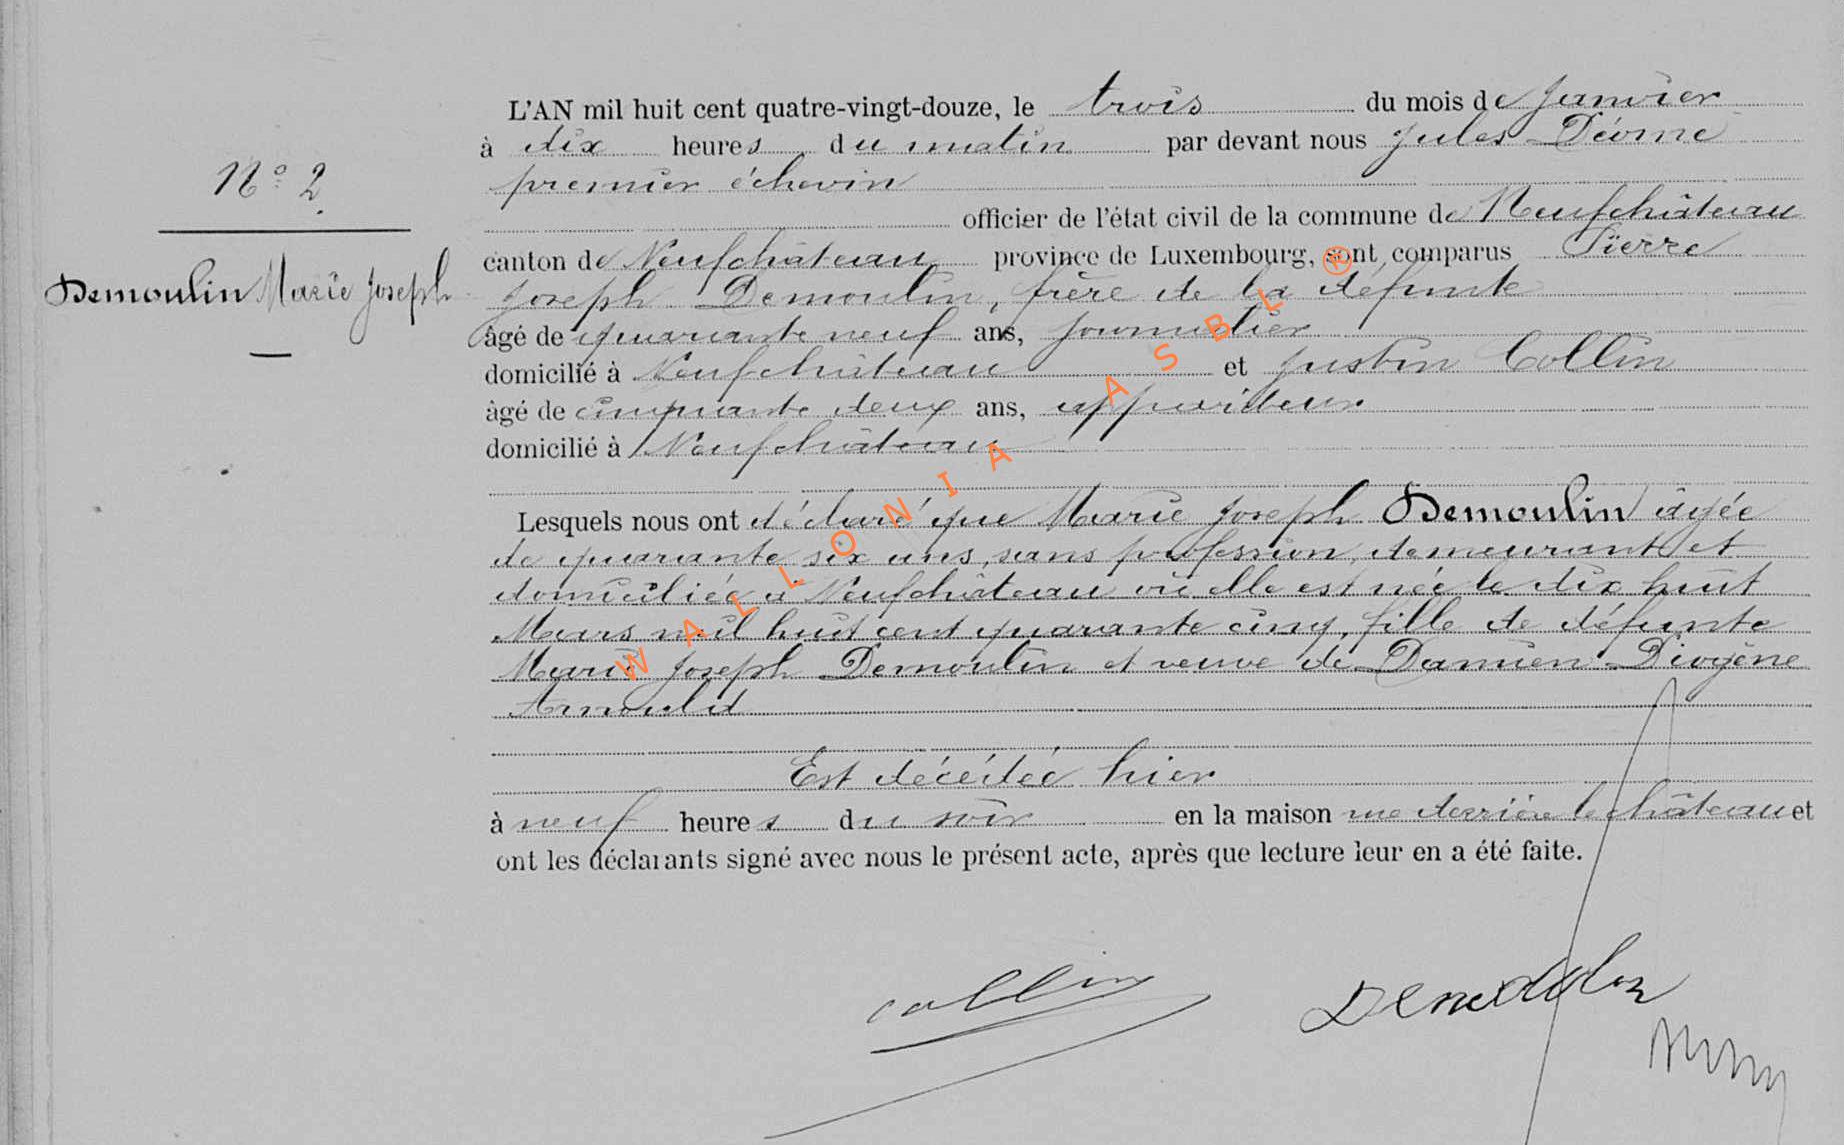 L'AN mil huit cent quatre-vingt-douze, le trois du mois de Janvier
à dix heures du matin par devant nous Jules Déome
premier échevin
officier de l'état civil de la commune de Neufchâteau
canton de Neufchâteau province de Luxembourg, sont comparus Pierre
Joseph Demoulin, frère de la défunte
âgé de quarante neuf ans, journalier
domicilié à Neufchâteau et Justin Collin
âgé de cinquante deux ans, appariteur
domicilié à Neufchâteau
Lesquels nous ont déclaré que Marie Joseph Demoulin âgée
de quarante six ans, sans profession, demeurant et
domiciliée à Neufchâteau où elle est née le dix huit
Mars mil huit cent quarante cinq, fille de défunte
Marie Joseph Demoulin et veuve de Damien Diogène
Arnould
Est décédée hier
à neuf heures du soir en la maison rue derrière le château et
ont les déclarants signé avec nous le présent acte, après que lecture leur en a été faite.
N° 2.
Demoulin Marie Joseph
collin
Demoulin
WALLONIA ASBL ®